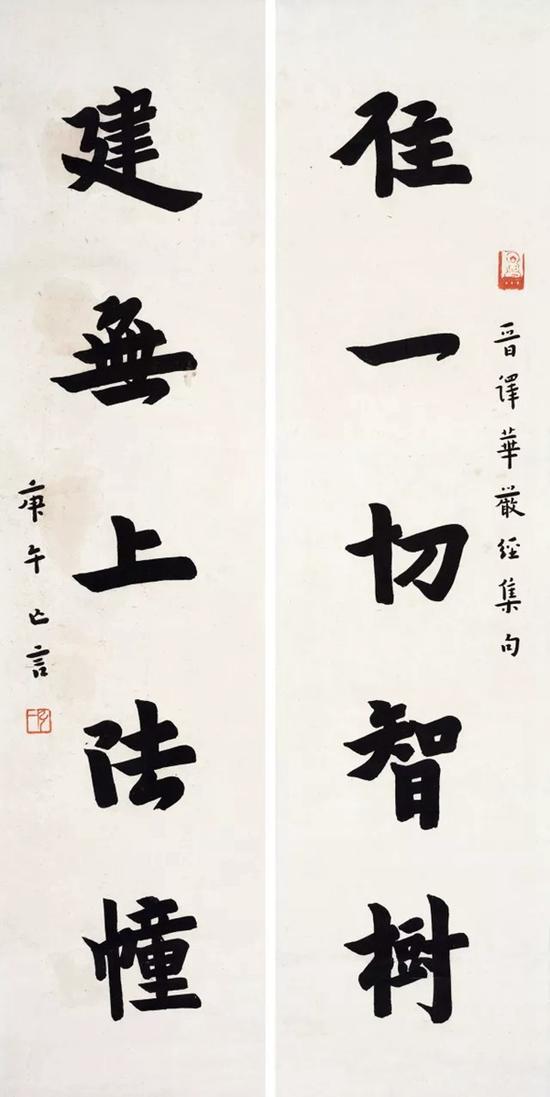 晉譯華嚴經集句
住一切智樹
建無上法幢
庚午亡言